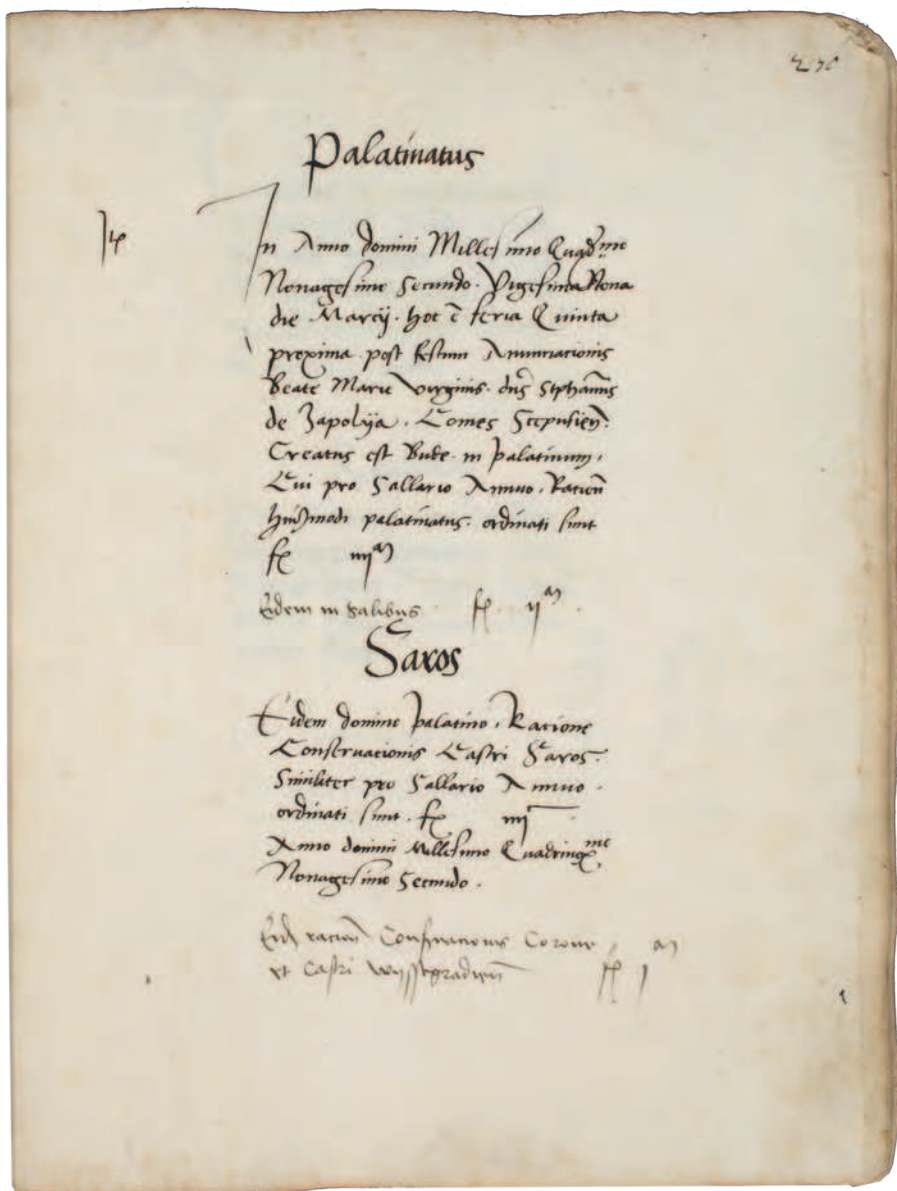 270
Palatinatus
In Anno domini Millesimo Quadr̃mo
Nonagesimo Secundo. Vigesima Nona
die Marcij. hoc ē feria Quinta
proxima post festum Anunciacionis
Beate Marie virginis. dn̄s Stephanus
de Zapolya. Comes Scepusien̄.
Creatus est Bude in palatinum,
Cui pro Sallario Annuo, Racion̄
hmōi palatinatus. ordinati sunt
fl iiijᵐ
Eidem in Salibus fl. ijᵐ.
Saros
Eidem domino palatino, Racione
Conservacionis Castri Saros.
Similiter pro Sallario Annuo.
ordinati sunt. fl iiij
Anno domini Millesimo Quadring̃mo
Nonagesimo Secundo.
Eid racion̄ Conservacionis Corone
et Castri Wyssegradien̄ fl jᵐ